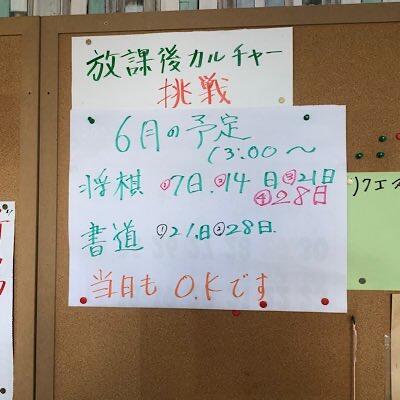 放課後カルチャー
挑戦
6月の予定
13:00～
将棋 ①7日.②14日③21日
④28日
書道 ①21.日②28日.
当日も O.Kです